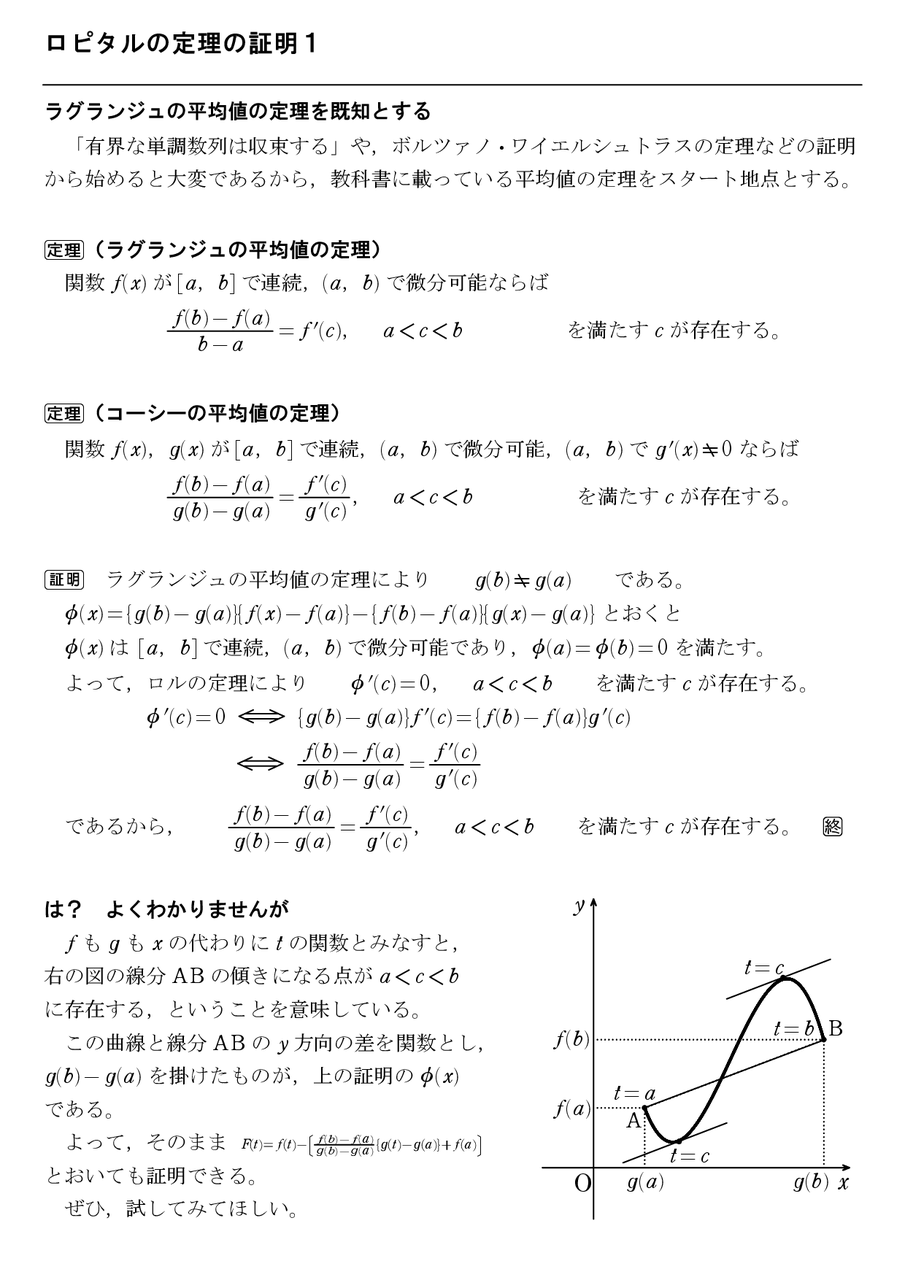 ロピタルの定理の証明1
ラグランジュの平均値の定理を既知とする
「有界な単調数列は収束する」や，ボルツァノ・ワイエルシュトラスの定理などの証明
から始めると大変であるから，教科書に載っている平均値の定理をスタート地点とする。
定理（ラグランジュの平均値の定理）
関数 f(x) が [a, b] で連続，(a, b) で微分可能ならば
(f(b)−f(a))/(b−a) = f′(c), a<c<b を満たす c が存在する。
定理（コーシーの平均値の定理）
関数 f(x)，g(x) が [a, b] で連続，(a, b) で微分可能，(a, b) で g′(x)≠0 ならば
(f(b)−f(a))/(g(b)−g(a)) = f′(c)/g′(c), a<c<b を満たす c が存在する。
証明 ラグランジュの平均値の定理により g(b)≠g(a) である。
ϕ(x)={g(b)−g(a)}{f(x)−f(a)}−{f(b)−f(a)}{g(x)−g(a)} とおくと
ϕ(x) は [a, b] で連続，(a, b) で微分可能であり，ϕ(a)=ϕ(b)=0 を満たす。
よって，ロルの定理により ϕ′(c)=0, a<c<b を満たす c が存在する。
ϕ′(c)=0 ⟺ {g(b)−g(a)}f′(c)={f(b)−f(a)}g′(c)
⟺ (f(b)−f(a))/(g(b)−g(a)) = f′(c)/g′(c)
であるから， (f(b)−f(a))/(g(b)−g(a)) = f′(c)/g′(c), a<c<b を満たす c が存在する。 終
は？ よくわかりませんが
f も g も x の代わりに t の関数とみなすと，
右の図の線分 AB の傾きになる点が a<c<b
に存在する，ということを意味している。
この曲線と線分 AB の y 方向の差を関数とし，
g(b)−g(a) を掛けたものが，上の証明の ϕ(x)
である。
よって，そのまま F(t)=f(t)−[(f(b)−f(a))/(g(b)−g(a)){g(t)−g(a)}+f(a)]
とおいても証明できる。
ぜひ，試してみてほしい。
y
t=c
t=b B
f(b)
t=a
f(a)
A
t=c
O g(a) g(b) x